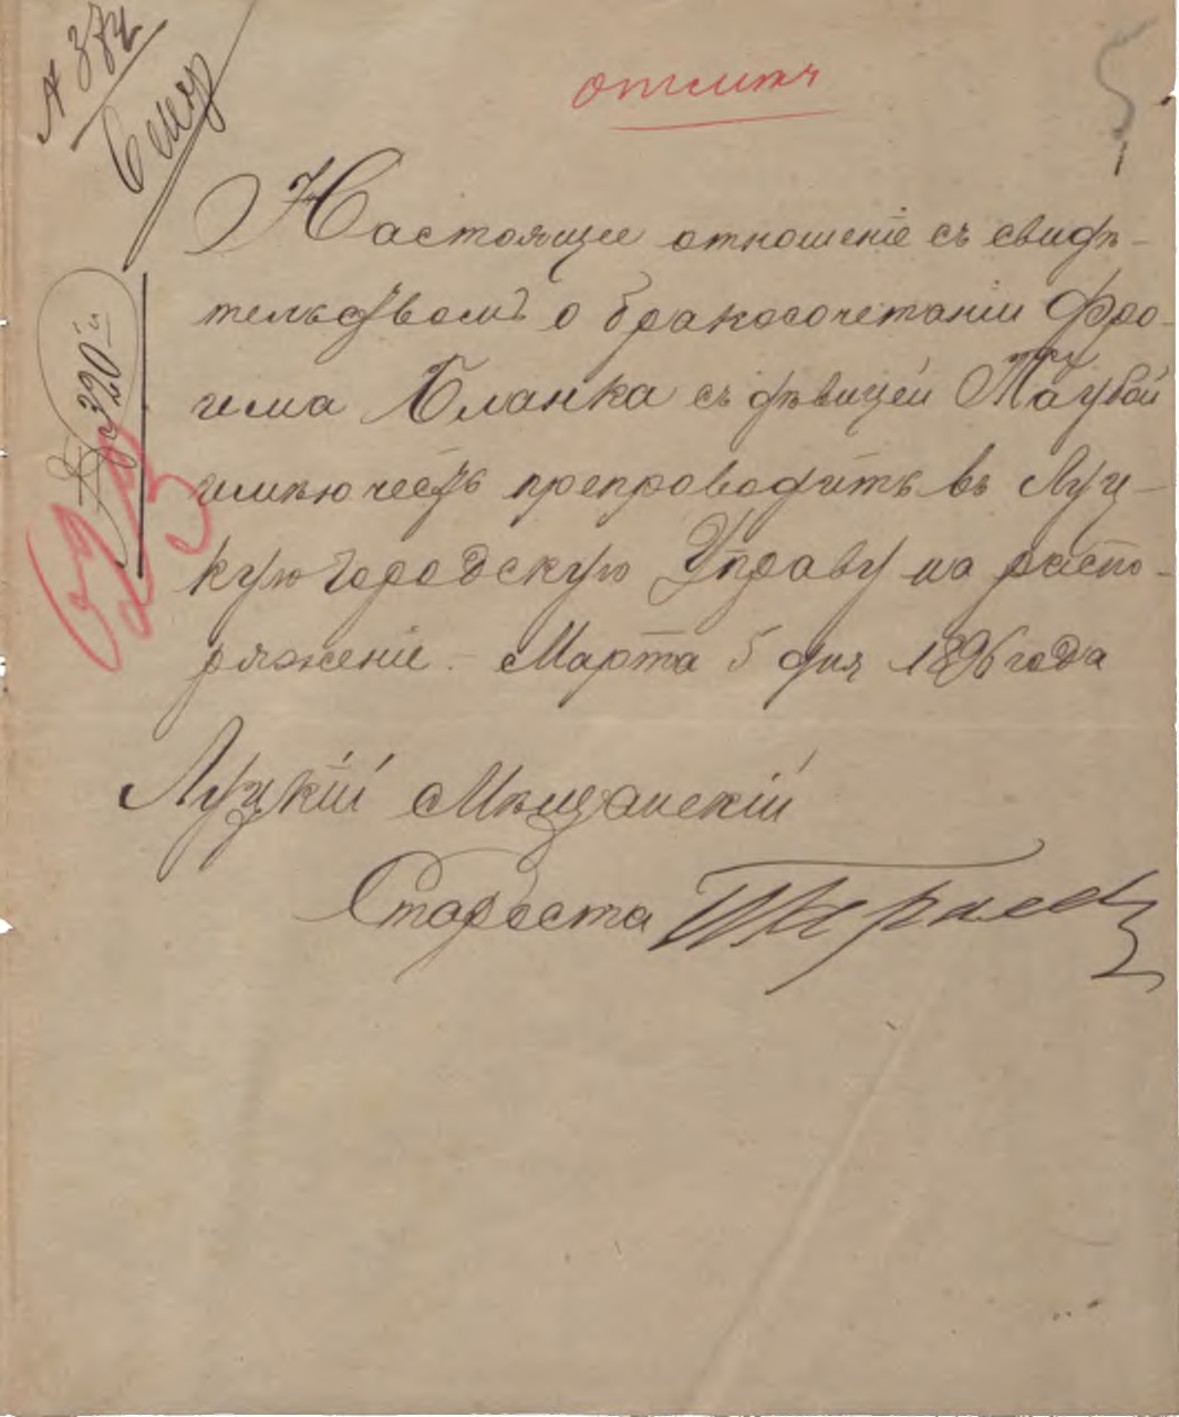 № 374
отмѣт
5
Настоящее отношеніе съ свидѣ-
тельствомъ о бракосочетаніи Фро-
има Бланка съ дѣвицей Таубой
имѣю честь препроводить въ Луц-
кую Городскую Управу на распо-
ряженіе. – Марта 5 дня 1896 года
Луцкій Мѣщанскій
Староста
№ 320